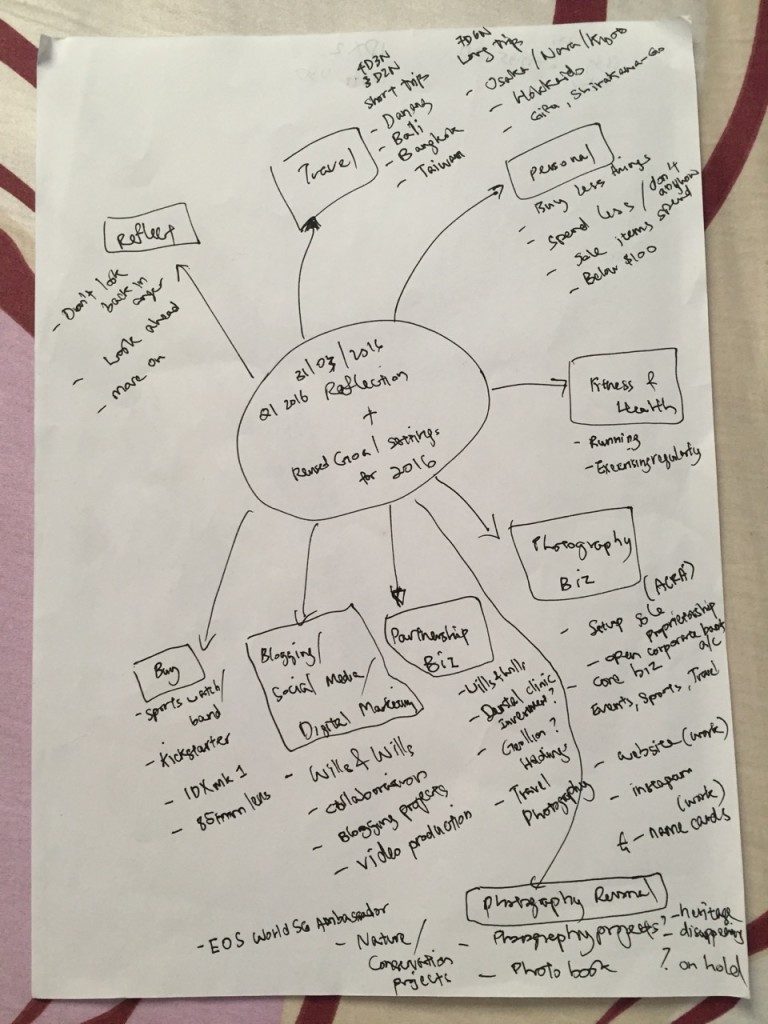 4D3N
3D2N
Short trips
- Danang
- Bali
- Bangkok
- Taiwan
7D6N
Long trips
- Osaka/Nara/Kyoto
- Hokkaido
- Gifu, Shirakawa-Go
Travel
Personal
- Buy less things
- Spend less / don't
anyhow
spend
- Sale items
- Below $100
Reflect
- Don't look
back in
anger
- Look ahead
- move on
31/03/2016
Q1 2016 Reflection
+
Revised Goal Settings
for 2016
Fitness &
Health
- Running
- Exercising regularly
Photography
Biz
(ACRA)
- Setup sole
Proprietorship
- open corporate bank
a/c
- core biz
Events, Sports, Travel
- website (work)
- instagram
(work)
- name cards
Partnership
Biz
- Dental clinic
investment?
?
Holdings
- Travel
Photography
Blogging/
Social Media/
Digital Marketing
- Wills & Wills
- collaboration
- Blogging projects
- video production
Buy
- sports watch/
band
- Kickstarter
- 1DX mk 1
- 85mm lens
Photography Personal
- Photography projects? - heritage
- disappearing
- Photo book ? on hold
- Nature/
Conservation
projects
- EOS World SG Ambassador